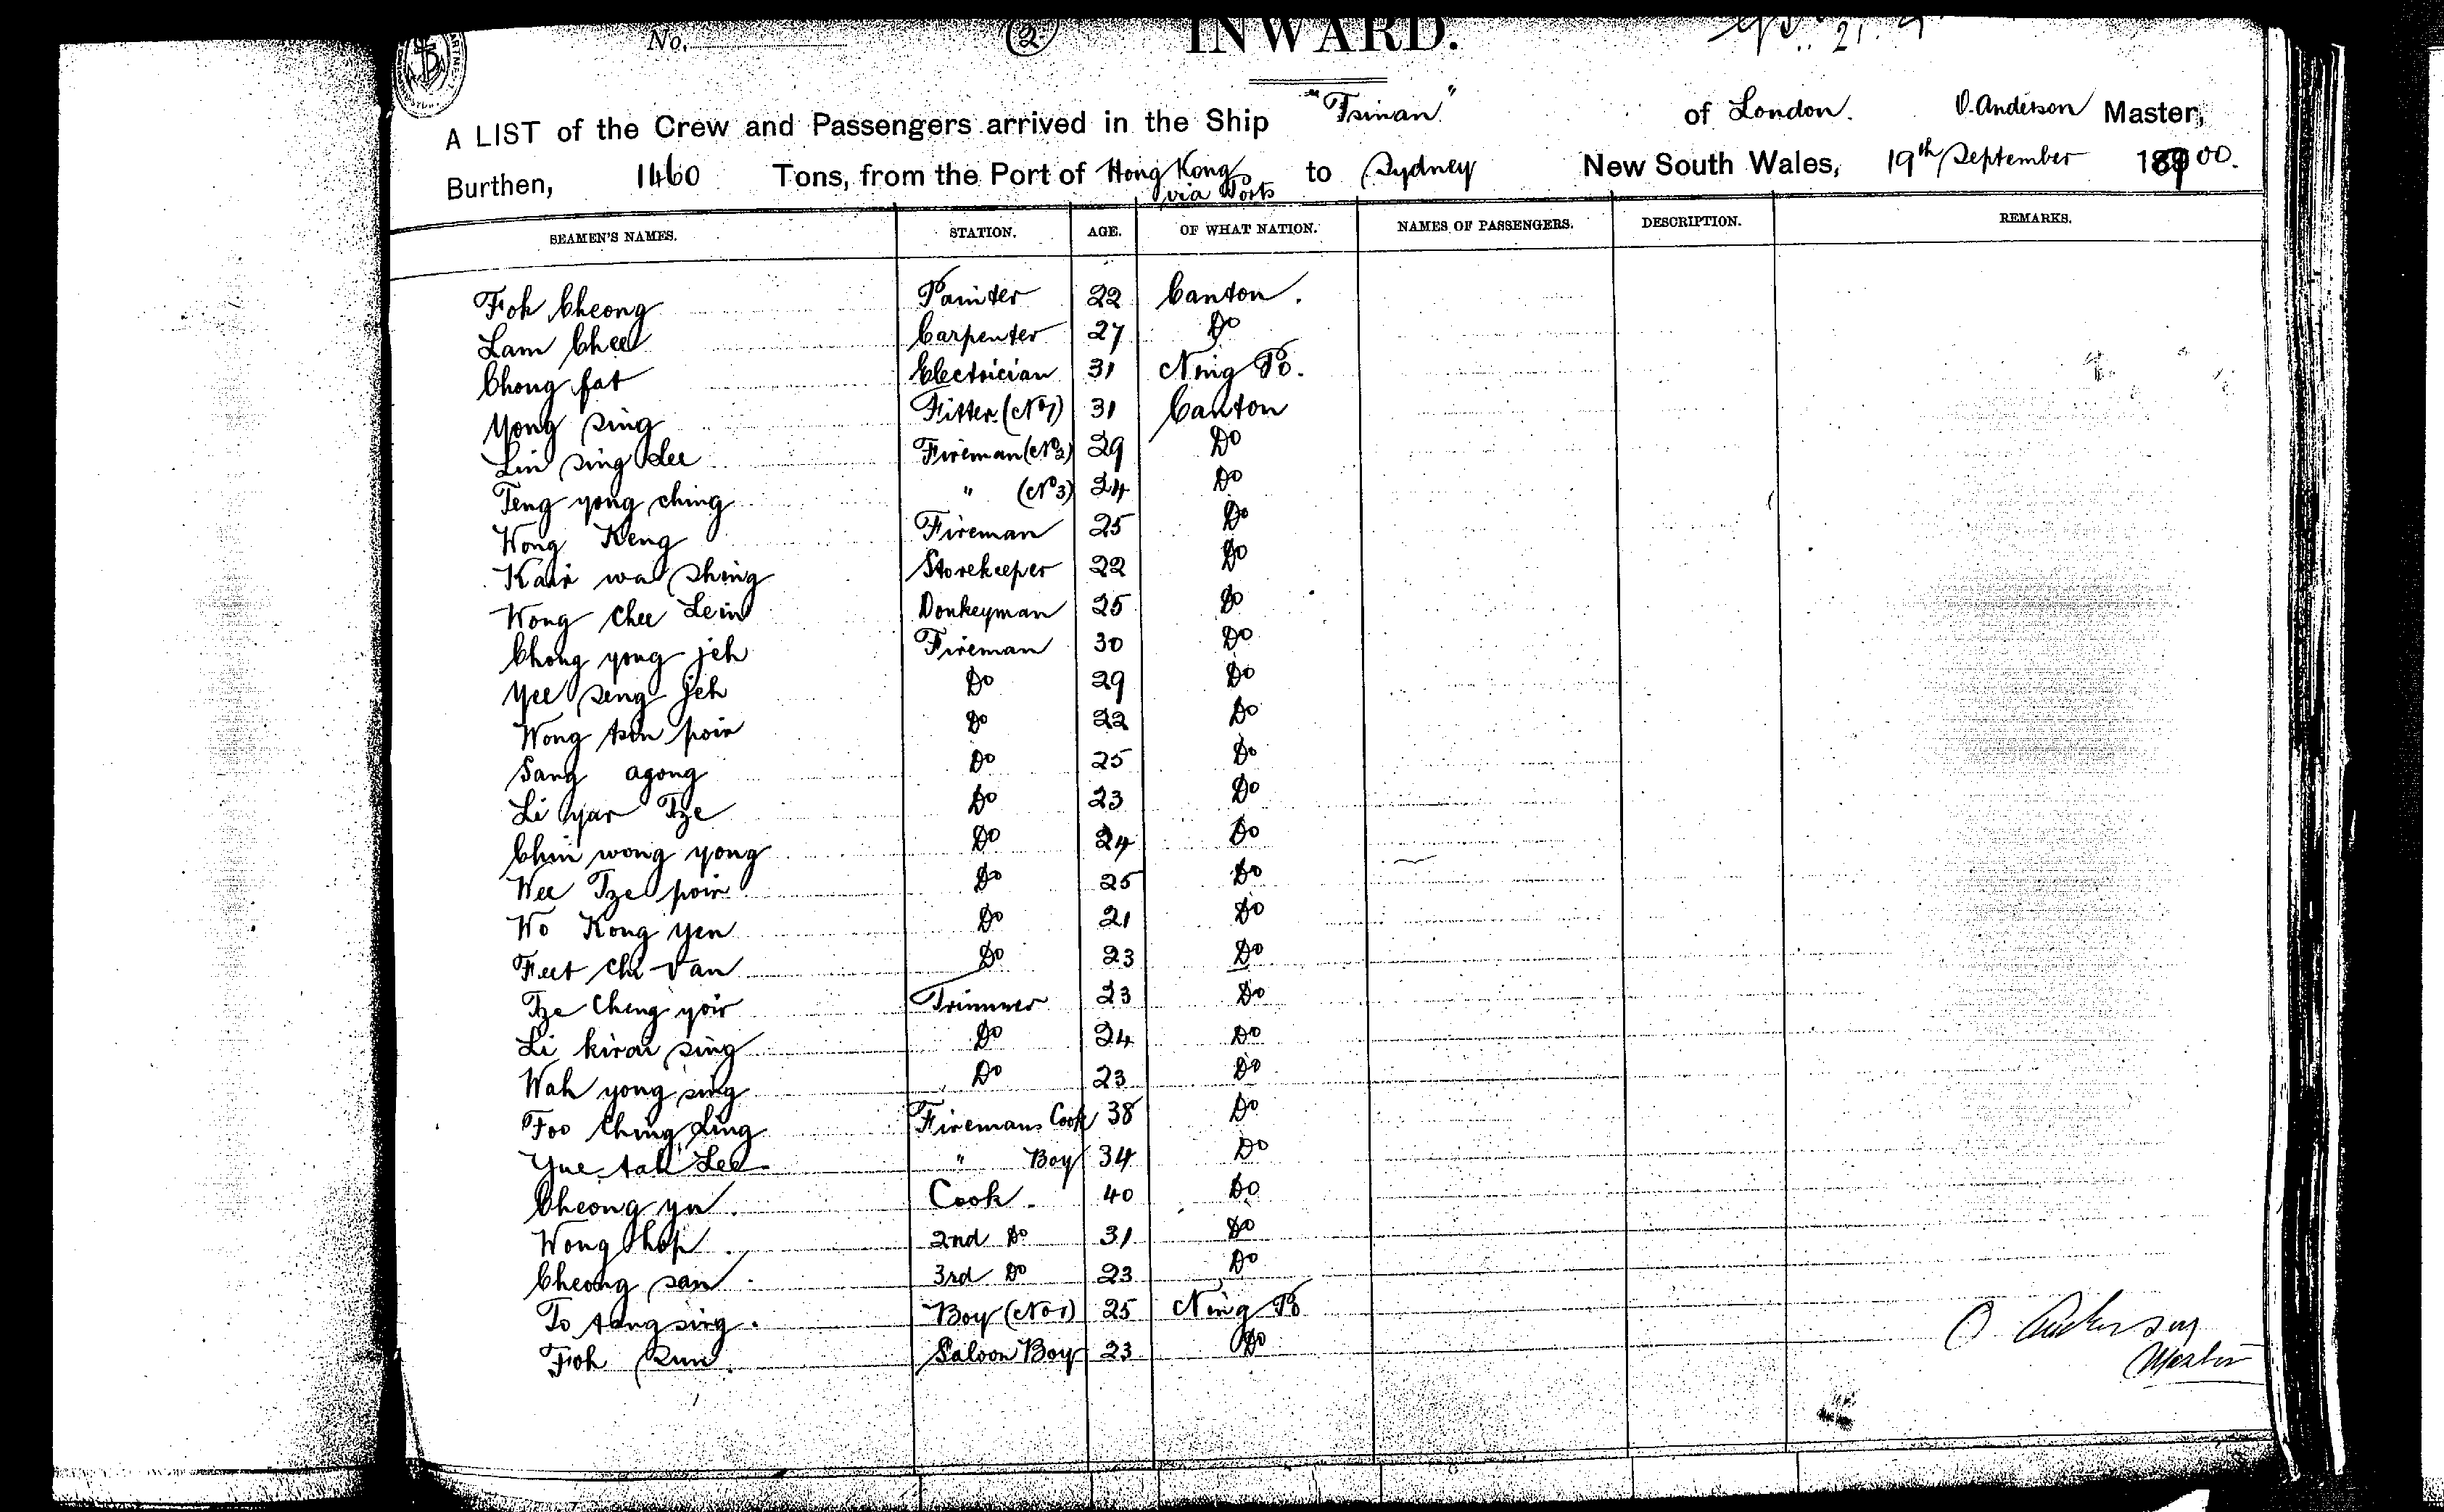 No.
2
INWARD.
A LIST of the Crew and Passengers arrived in the Ship "Tsinan" of London. O. Anderson Master,
Burthen, 1460 Tons, from the Port of Hong Kong via Ports to Sydney New South Wales, 19th September 1900.
SEAMEN'S NAMES. STATION. AGE. OF WHAT NATION. NAMES OF PASSENGERS. DESCRIPTION. REMARKS.
Foh Cheong Painter 22 Canton.
Lam Chee Carpenter 27 Do
Chong fat Electrician 31 Ning Po.
Yong Sing Fitter (No 1) 31 Canton
Lin Sing Lee Fireman (No 2) 29 Do
Teng yong ching " (No 3) 24 Do
Wong Keng Fireman 25 Do
Kair wa Shing Storekeeper 22 Do
Wong Chee Lein Donkeyman 25 Do
Chong yong jeh Fireman 30 Do
Yee Seng jeh Do 29 Do
Wong tsin poir Do 22 Do
Sang agong Do 25 Do
Li yar Tze Do 23 Do
Chin wong yong Do 24 Do
Wee Tze poir Do 25 Do
Wo Kong yen Do 21 Do
Feet Chi Van Do 23 Do
Tze Cheng yoir Trimmer 23 Do
Li kirai sing Do 24 Do
Wah yong sing Do 23 Do
Foo Ching Ling Firemans Cook 38 Do
Yue tah Lee " Boy 34 Do
Cheong yu. Cook. 40 Do
Wong hop. 2nd Do 31 Do
Cheong san. 3rd Do 23 Do
To tang sing. Boy (No 1) 25 Ning Po
Foh Sun. Saloon Boy 23 Do
O Anderson
Master